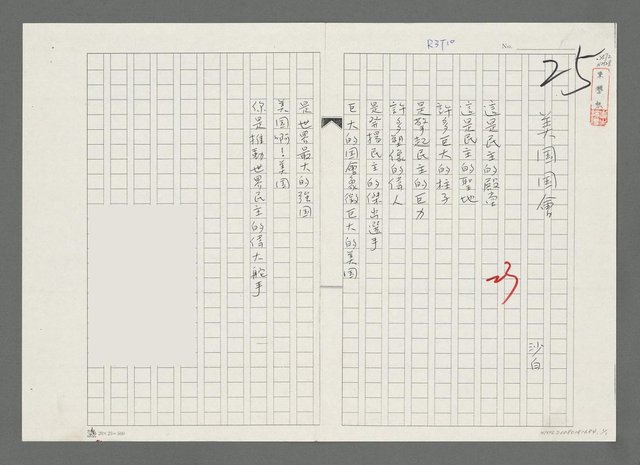 R3T10
No.
25
美国国會
沙白
這是民主的殿堂
這是民主的聖地
許多巨大的柱子
是擎起民主的巨力
許多塑像的偉人
是發揚民主的傑出選手
巨大的国會象徵巨大的美国
23
是世界最大的強国
美国啊!美国
你是推動世界民主的偉大舵手
20×25=500